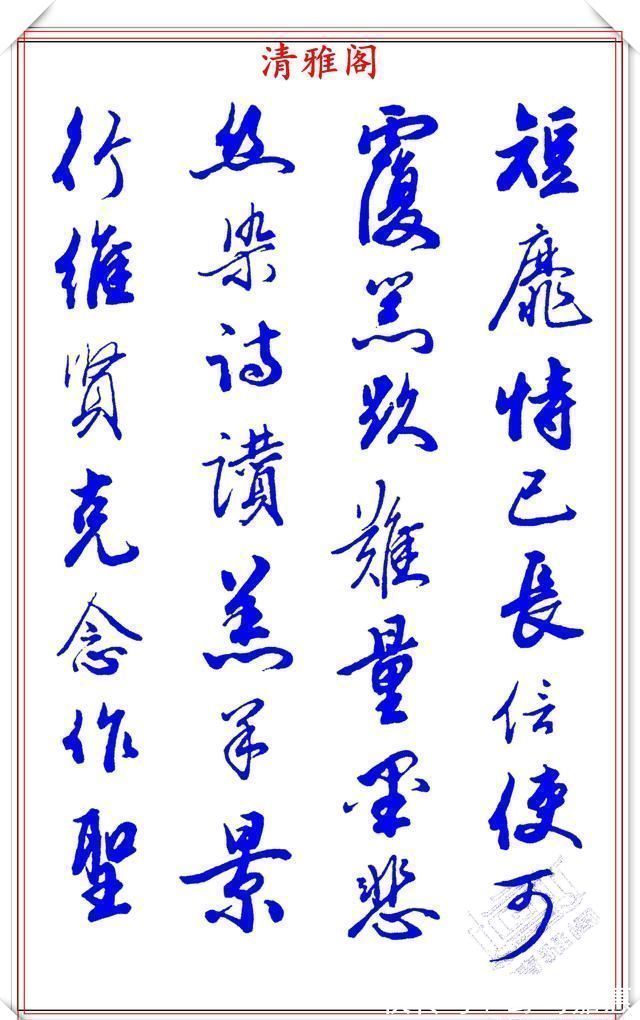 清雅阁
短靡恃己長信使可
覆器欲難量墨悲
絲染詩讚羔羊景
行維賢克念作聖